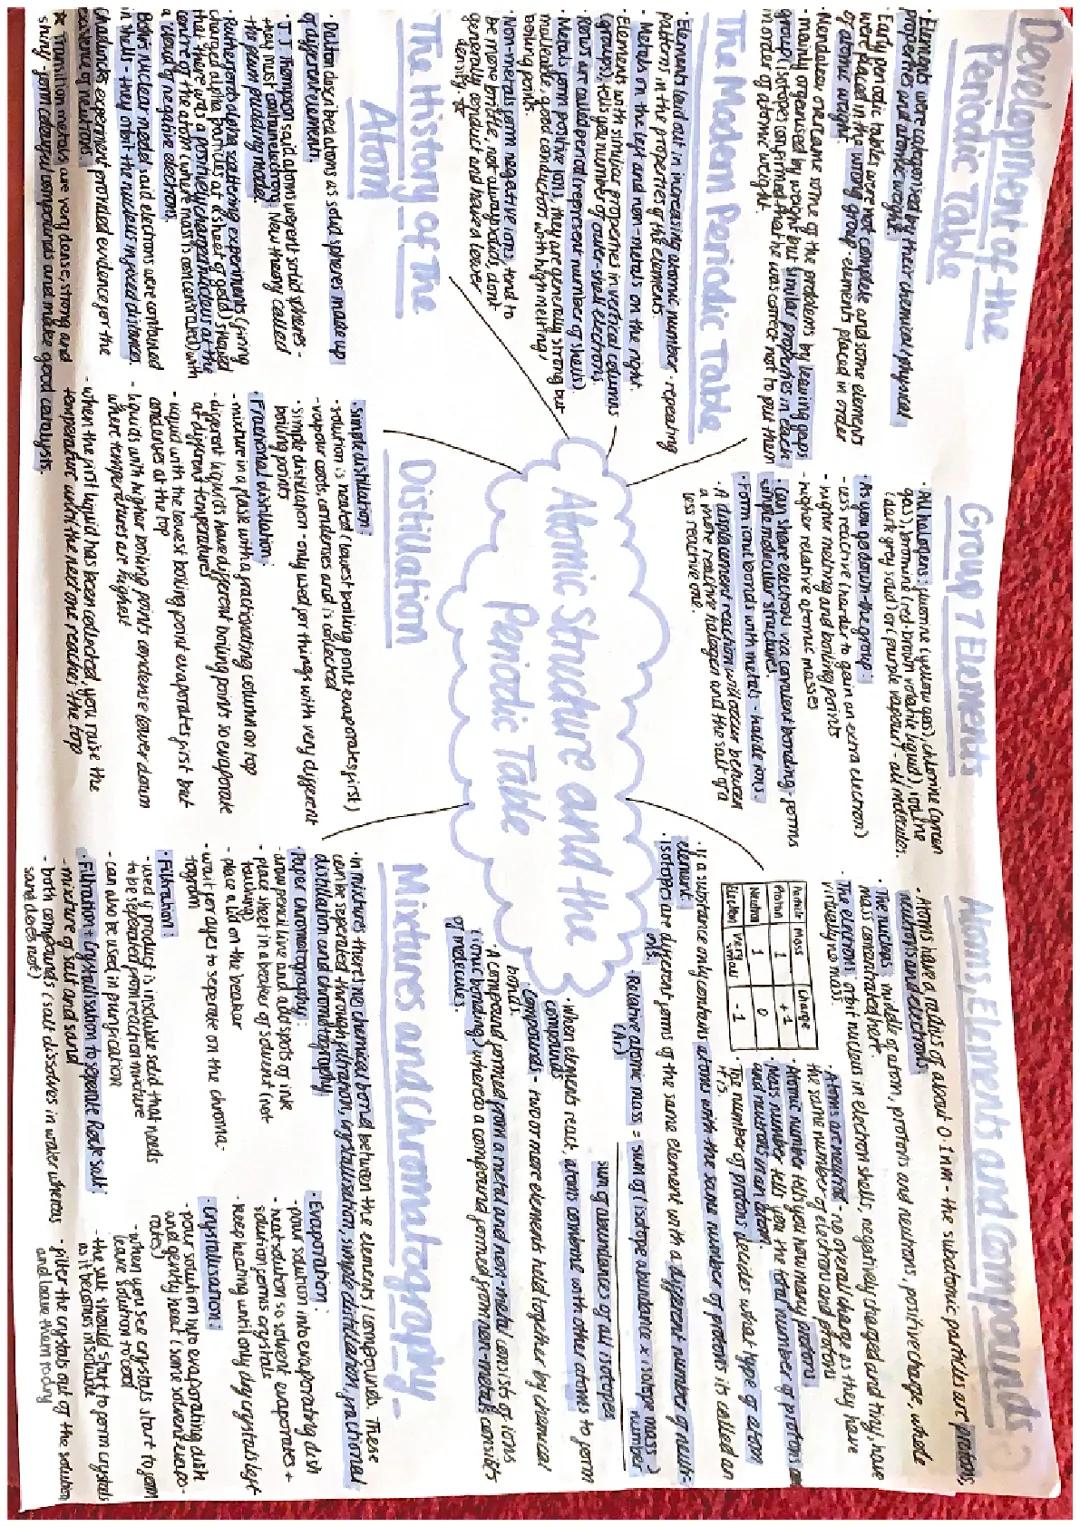 Development of the
Periodic Table
· Elements were categorised by their chemical/physical
properties and atomic weight.
· Early periodic tables were not complete and some elements
were placed in the wrong group - elements placed in order
of atomic weight.
· Mendeleev overcame some of the problems by leaving gaps
- mainly organised by weight but similar properties in each
group (isotopes confirmed that he was correct not to put them
in order of atomic weight.
The Modern Periodic Table
· Elements laid out in increasing atomic number - repeating
patterns in the properties of the elements.
· Metals on the left and non-metals on the right.
· Elements with similar properties in vertical columns
(groups), tells you number of outer shell electrons.
· Rows are called period (represent number of shells)
· Metals form positive ions, they are generally strong but
malleable, good conductors with high melting/
boiling points.
· Non-metals form negative ions, tend to
be more brittle, not always solids, dont
generally conduct and have a lower
density *
The History of the
Atom
· Dalton described atoms as solid spheres made up
of different elements.
· J.J Thompson said atoms werent solid spheres -
they must contain electrons. New theory called
the plum pudding model.
· Rutherfords alpha scattering experiments (firing
charged alpha particles at a sheet of gold) showed
that there was a positively charged nucleus at the
centre of the atom (where mass is concentrated) with
a 'cloud' of negative electrons.
· Bohrs nuclear model said electrons were contained
in shells - they orbit the nucleus in fixed distances.
· Chadwicks experiment provided evidence for the
existence of neutrons.
* Transition metals are very dense, strong and
shiny - form colourful compounds and make good catalysts.
Group 7 Elements
· All halogens: fluorine (yellow gas), chlorine (green
gas), bromine (red-brown volatile liquid), iodine
(dark grey solid) or (purple vapour) - all molecules.
· As you go down the group:
- less reactive (harder to gain an extra electron)
- higher melting and boiling points
- higher relative atomic masses
· Can share electrons via covalent bonding - forms
simple molecular structures.
· Form ionic bonds with metals - halide ions.
· A displacement reaction will occur between
a more reactive halogen and the salt of a
less reactive one.
Atomic Structure and the
Periodic Table
Distillation
· Simple distillation:
- solution is heated (lowest boiling point evaporates first)
- vapour cools, condenses and is collected
- simple distillation - only used for things with very different
boiling points
· Fractional distillation:
- mixture in a flask with a fractionating column on top
- different liquids have different boiling points so evaporate
at different temperatures
- liquid with the lowest boiling point evaporates first but
and rises at the top
- liquids with higher boiling points condense lower down
where temperatures are highest
- when the first liquid has been collected, you raise the
temperature until the next one reaches the top
Atoms, Elements and Compounds
· Atoms have a radius of about 0.1nm - the subatomic particles are protons,
neutrons and electrons.
· The nucleus: middle of atom, protons and neutrons, positive charge, whole
mass concentrated here
· The electrons: orbit nucleus in electron shells, negatively charged and tiny, have
virtually no mass.
Mass Charge
Proton 1 +1
Neutron 1 0
Electron very small -1
· Atoms are neutral - no overall charge as they have
the same number of electrons and protons
· Atomic number tells you how many protons
· Mass number tells you the total number of protons
and neutrons in an atom.
· The number of protons decides what type of atom
it is.
· If a substance only contains atoms with the same number of protons its called an
element.
· Isotopes are different forms of the same element with a different number of neutr-
ons.
· Relative atomic mass (Ar) = sum of (isotope abundance x isotope mass number)
sum of abundances of all isotopes
· When elements react, atoms combine with other atoms to form
compounds
· Compounds - two or more elements held together by chemical
bonds.
· A compound formed from a metal and non-metal consists of ions
(ionic bonding) whereas a compound formed from non-metals consists
of molecules.
Mixtures and Chromatography
· In mixtures there's no chemical bond between the elements/compounds. These
can be seperated through filtration, crystallisation, simple distillation, fractional
distillation and chromatography.
· Paper Chromatography:
- draw pencil line and add spots of ink
- place sheet in a beaker of solvent (not
touching)
- place a lid on the beaker
- wait for dyes to seperate on the chroma-
togram
· Filtration:
- used if product is insoluble solid that needs
to be separated from reaction mixture
- can also be used in purification
· Filtration + Crystallisation to seperate Rock salt:
- mixture of salt and sand
- both compounds (salt dissolves in water whereas
sand does not)
· Evaporation:
- pour solution into evaporating dish
- heat solution so solvent evaporates +
solution forms crystals
- keep heating until only dry crystals left
· Crystallisation:
- pour solution into evaporating dish
and gently heat some solvent evapo-
rates)
- when you see crystals start to form
leave solution to cool
- the salt should start to form crystals
as it becomes insoluble
- filter the crystals out of the solution
and leave them to dry